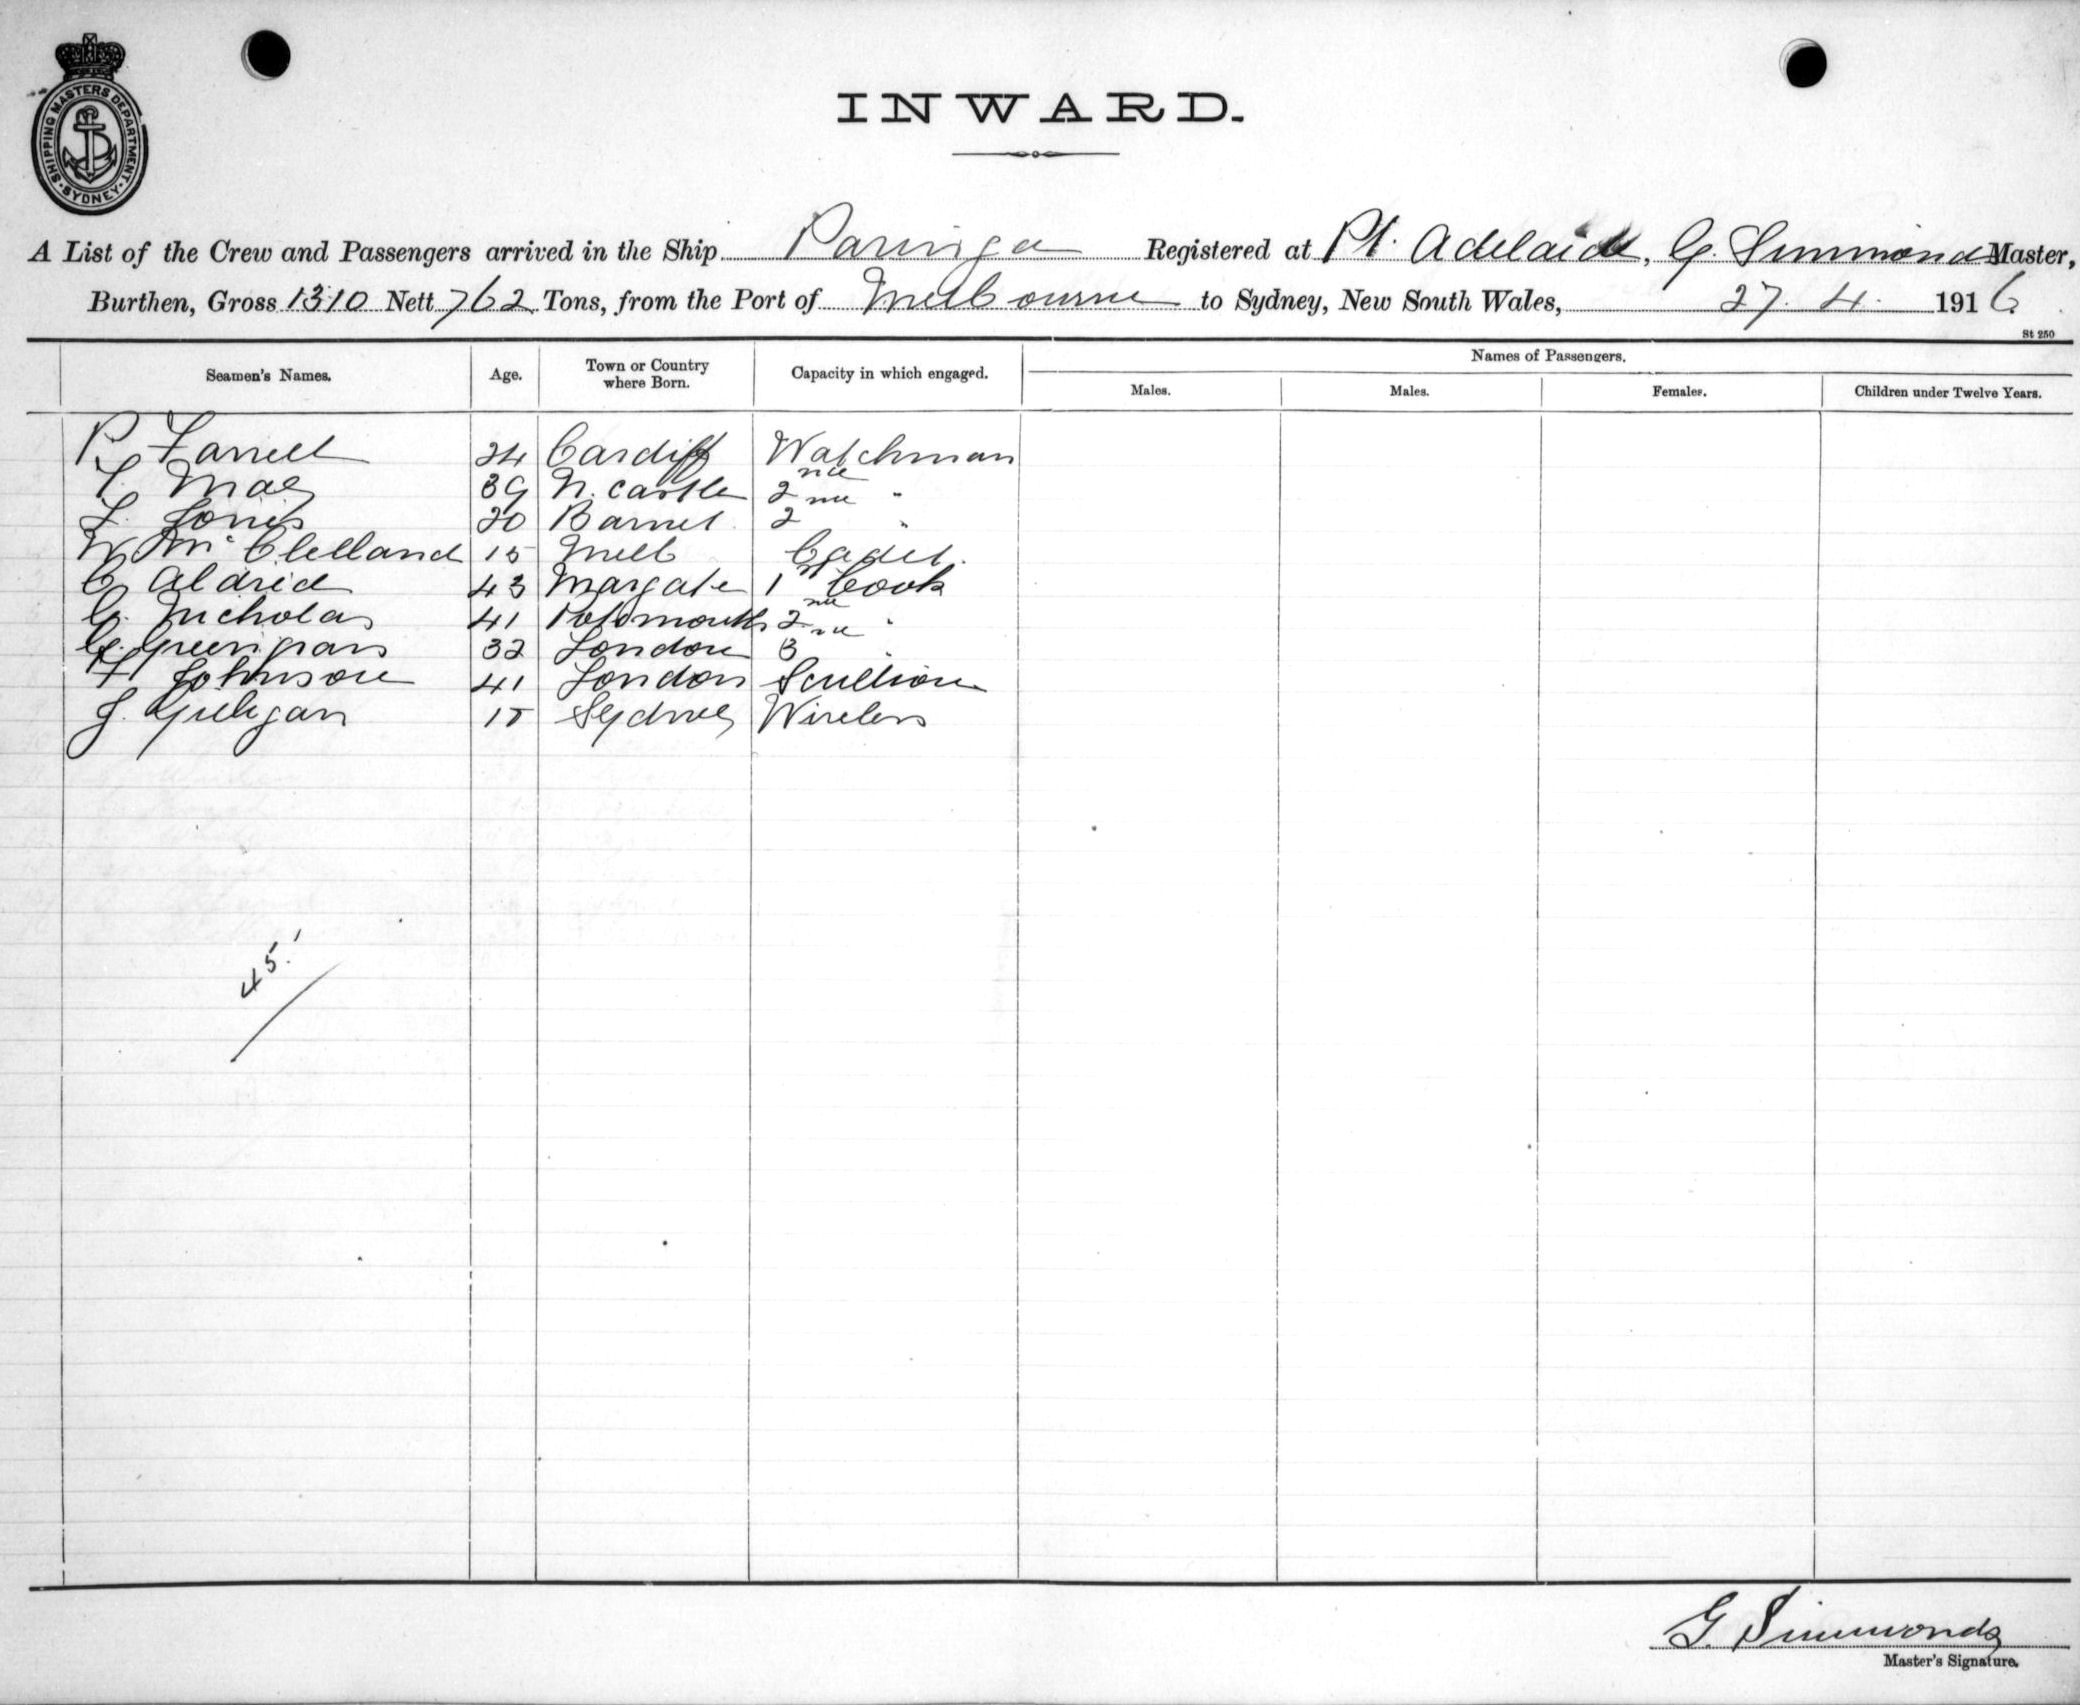 SHIPPING MASTERS DEPARTMENT.
SYDNEY
INWARD.
A List of the Crew and Passengers arrived in the Ship Paringa Registered at Pt. Adelaide, G. Simmonds Master,
Burthen, Gross 1310 Nett 762 Tons, from the Port of Melbourne to Sydney, New South Wales, 27. 4. 1916
St 250
Seamen's Names. Age. Town or Country where Born. Capacity in which engaged. Names of Passengers.
Males. Males. Females. Children under Twelve Years.
P. Farrell 24 Cardiff Watchman
39 N. Castle 2 "
20 Barnet 2 "
W McClelland 15 Melb Cadet.
C Aldrid 43 Margate 1st Cook
G. Nicholas 41 Potsmouth 2 "
32 London 3 "
H Johnson 41 London Scullion
J. Gilligan Sydney Wireless
45.
G. Simmonds
Master's Signature.